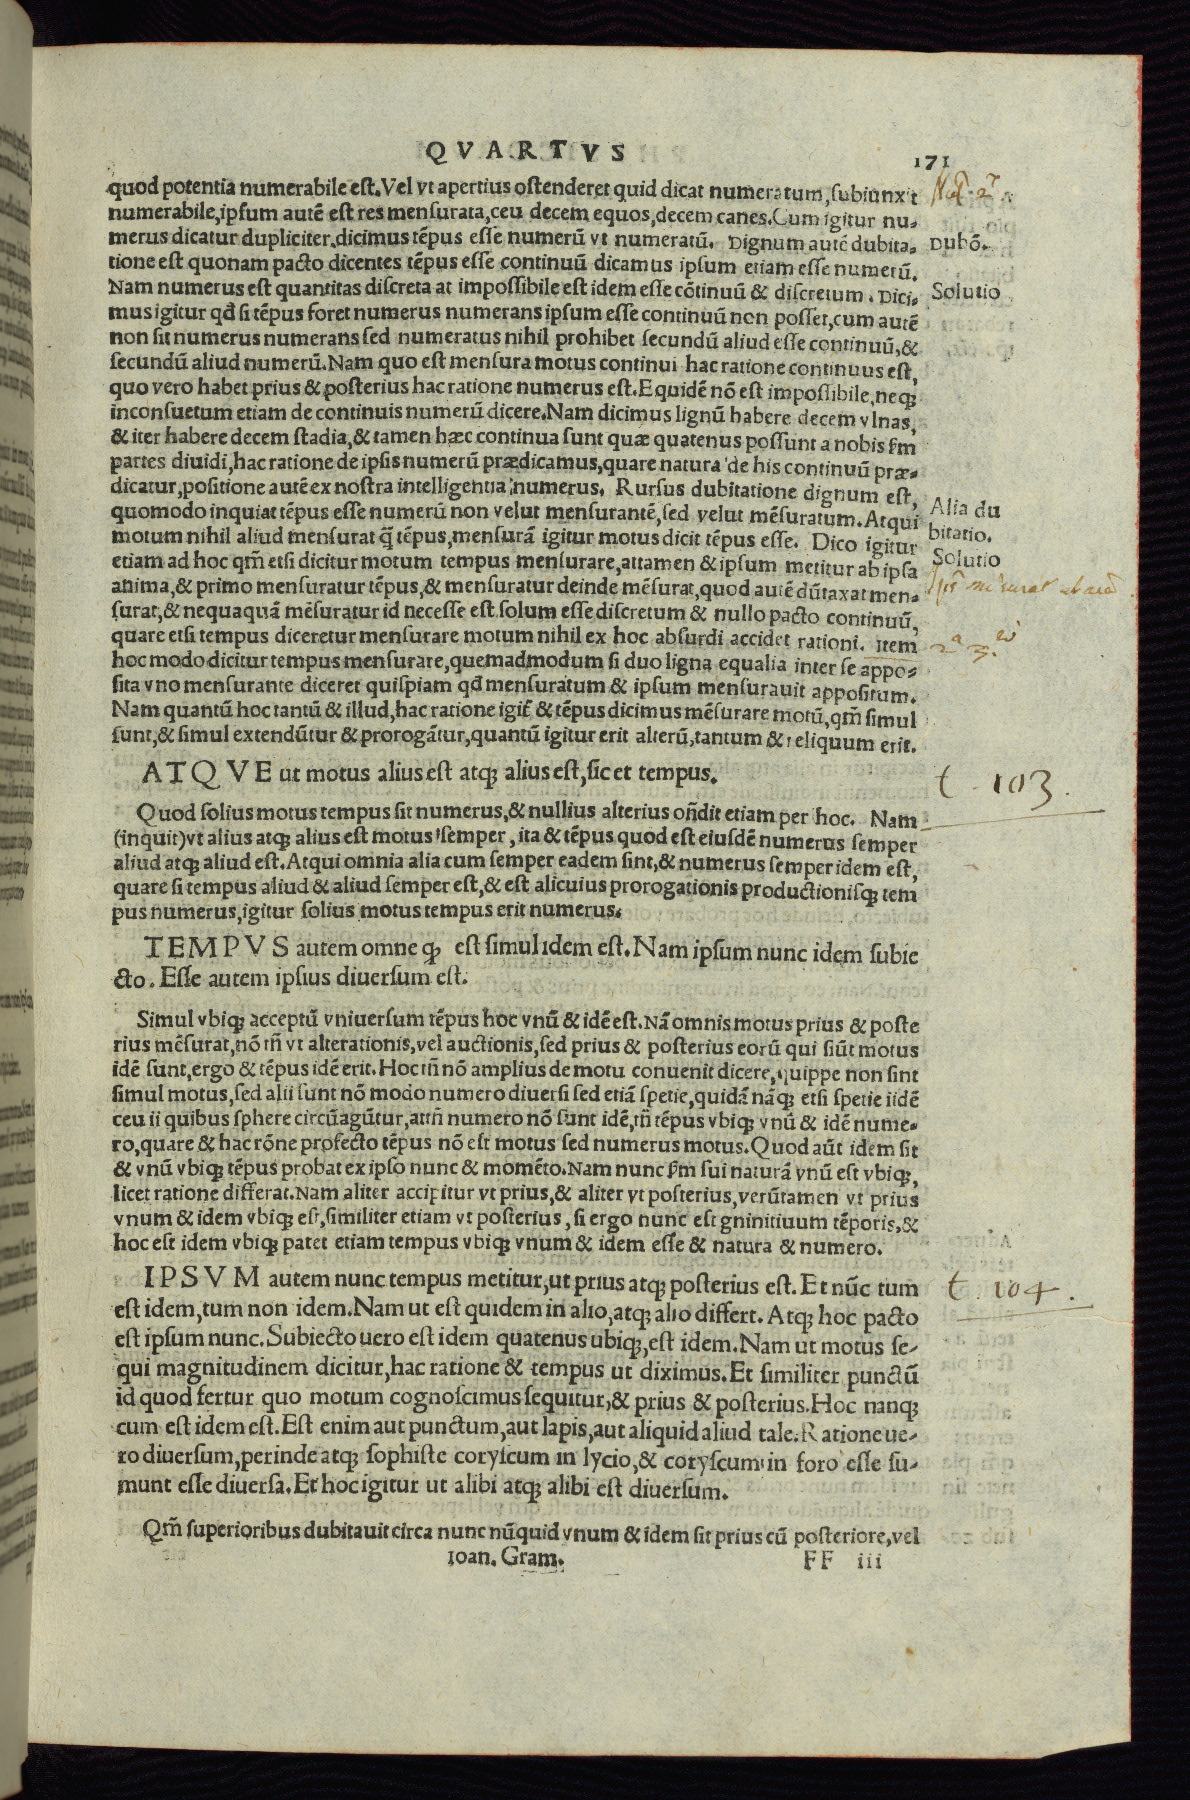 QVARTVS 171
quod potentia numerabile est. Vel vt apertius ostenderet quid dicat numeratum, subiunxit
numerabile, ipsum autē est res mensurata, ceu decem equos, decem canes. Cum igitur nu-
merus dicatur dupliciter, dicimus tēpus esse numerū vt numeratū. Dignum autē dubita- Dubō.
tione est quonam pacto dicentes tēpus esse continuū dicamus ipsum etiam esse numerū.
Nam numerus est quantitas discreta at impossibile est idem esse cōtinuū & discretum. Dici- Solutio
mus igitur qđ si tēpus foret numerus numerans ipsum esse continuū non posset, cum autē
non sit numerus numerans sed numeratus nihil prohibet secundū aliud esse continuū, &
secundū aliud numerū. Nam quo est mensura motus continui hac ratione continuus est,
quo vero habet prius & posterius hac ratione numerus est. Equidē nō est impossibile, neqȝ
inconsuetum etiam de continuis numerū dicere. Nam dicimus lignū habere decem vlnas,
& iter habere decem stadia, & tamen hæc continua sunt quæ quatenus possunt a nobis ẜm
partes diuidi, hac ratione de ipsis numerū prædicamus, quare natura de his continuū præ-
dicatur, positione autē ex nostra intelligentia numerus. Rursus dubitatione dignum est,
quomodo inquiat tēpus esse numerū non velut mensurantē, sed velut mēsuratum. Atqui Alia du
motum nihil aliud mensurat q̃ tēpus, mensurā igitur motus dicit tēpus esse. Dico igitur bitatio.
etiam ad hoc qm̄ etsi dicitur motum tempus mensurare, attamen & ipsum metitur ab ipsa Solutio
anima, & primo mensuratur tēpus, & mensuratur deinde mēsurat, quod autē dūtaxat men-
surat, & nequaquā mēsuratur id necesse est solum esse discretum & nullo pacto continuū,
quare etsi tempus diceretur mensurare motum nihil ex hoc absurdi accidet rationi. Item
hoc modo dicitur tempus mensurare, quemadmodum si duo ligna equalia inter se appo-
sita vno mensurante diceret quispiam qđ mensuratum & ipsum mensurauit appositum.
Nam quantū hoc tantū & illud, hac ratione igit̃ & tēpus dicimus mēsurare motū, qm̄ simul
sunt, & simul extendūtur & prorogātur, quantū igitur erit alterū, tantum & reliquum erit.
ATQVE ut motus alius est atqȝ alius est, sic et tempus. t. 103.
Quod solius motus tempus sit numerus, & nullius alterius oñdit etiam per hoc. Nam
(inquit) vt alius atqȝ alius est motus semper, ita & tēpus quod est eiusdē numerus semper
aliud atqȝ aliud est. Atqui omnia alia cum semper eadem sint, & numerus semper idem est,
quare si tempus aliud & aliud semper est, & est alicuius prorogationis productionisqȝ tem
pus numerus, igitur solius motus tempus erit numerus.
TEMPVS autem omne qȝ est simul idem est. Nam ipsum nunc idem subie
cto. Esse autem ipsius diuersum est.
Simul vbiqȝ acceptū vniuersum tēpus hoc vnū & idē est. Nā omnis motus prius & poste
rius mēsurat, nō tñ vt alterationis, vel auctionis, sed prius & posterius eorū qui siūt motus
idē sunt, ergo & tēpus idē erit. Hoc tñ nō amplius de motu conuenit dicere, quippe non sint
simul motus, sed alii sunt nō modo numero diuersi sed etiā spetie, quidā nāqȝ etsi spetie iidē
ceu ii quibus sphere circūagūtur, attñ numero nō sunt idē, tñ tēpus vbiqȝ vnū & idē nume-
ro, quare & hac rōne profecto tēpus nō est motus sed numerus motus. Quod aūt idem sit
& vnū vbiqȝ tēpus probat ex ipso nunc & momēto. Nam nunc ẜm sui naturā vnū est vbiqȝ,
licet ratione differat. Nam aliter accipitur vt prius, & aliter vt posterius, verūtamen vt prius
vnum & idem vbiqȝ est, similiter etiam vt posterius, si ergo nunc est gninitiuum tēporis, &
hoc est idem vbiqȝ patet etiam tempus vbiqȝ vnum & idem esse & natura & numero.
IPSVM autem nunc tempus metitur, ut prius atqȝ posterius est. Et nūc tum t. 104.
est idem, tum non idem. Nam ut est quidem in alio, atqȝ alio differt. Atqȝ hoc pacto
est ipsum nunc. Subiecto uero est idem quatenus ubiqȝ, est idem. Nam ut motus se-
qui magnitudinem dicitur, hac ratione & tempus ut diximus. Et similiter punctū
id quod fertur quo motum cognoscimus sequitur, & prius & posterius. Hoc nanqȝ
cum est idem est. Est enim aut punctum, aut lapis, aut aliquid aliud tale. Ratione ue-
ro diuersum, perinde atqȝ sophiste coryscum in lycio, & coryscum in foro esse su-
munt esse diuersa. Et hoc igitur ut alibi atqȝ alibi est diuersum.
Qm̄ superioribus dubitauit circa nunc nūquid vnum & idem sit prius cū posteriore, vel
Ioan. Gram. FF iii